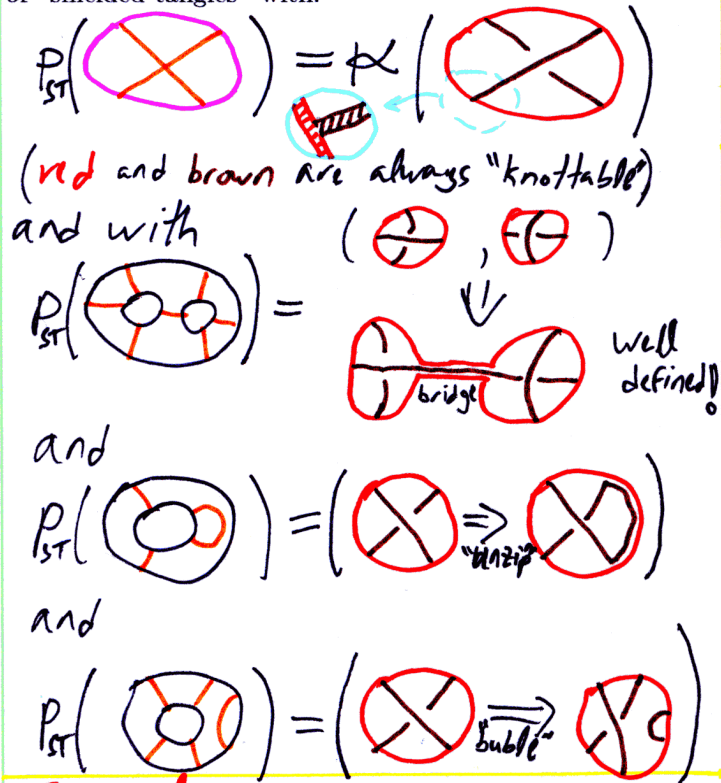 or "shielded tangles" with:
P_ST( ) = K( )
(red and brown are always "knottable")
and with ( , )
P_ST( ) = ⇓
bridge
well
defined!
and
P_ST( ) = ( ⇒ )
"unzip"
and
P_ST( ) = ( ⇒ )
"buble"